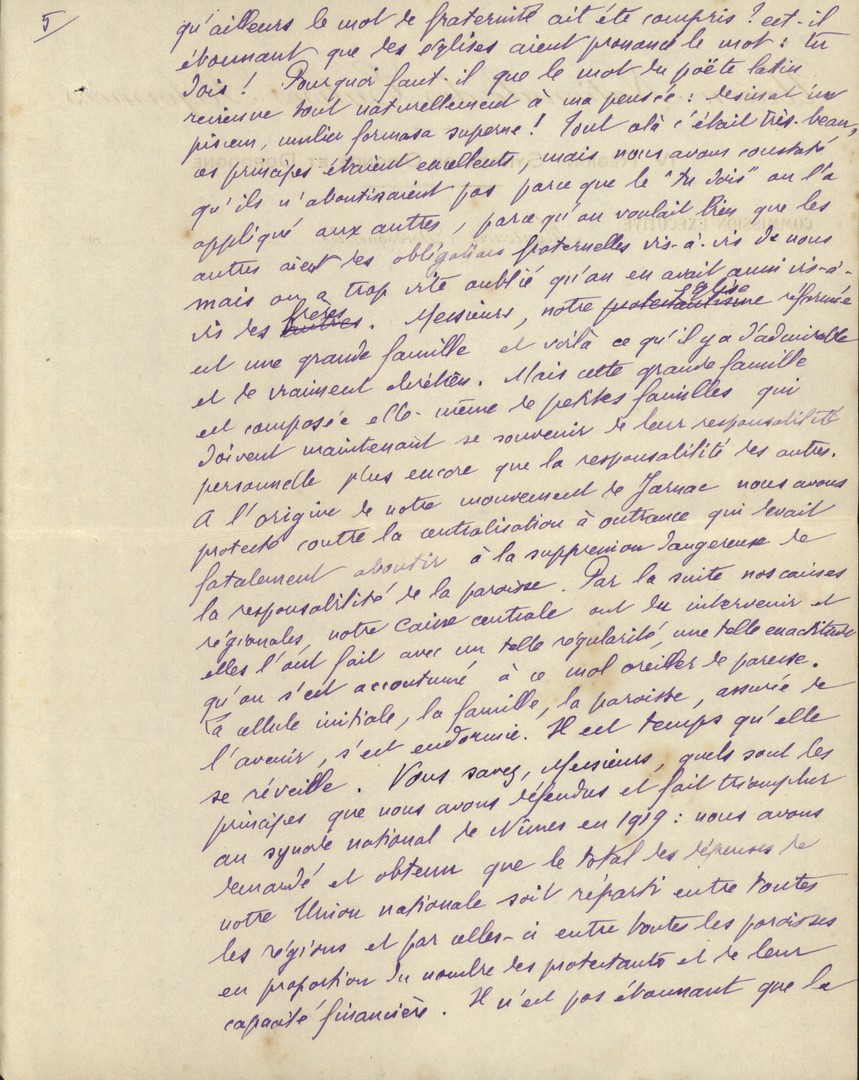 5
qu'ailleurs le mot de fraternité ait été compris ? est-il
étonnant que des églises aient prononcé le mot : tu
dois ! Pourquoi faut-il que le mot du poëte latin
revienne tout naturellement à ma pensée : desinat in
piscem, mulier formosa superne ! Tout cela c'était très-beau,
ces principes étaient excellents, mais nous avons constaté
qu'ils n'aboutissaient pas parce que le "tu dois" on l'a
appliqué aux autres, parce qu'on voulait bien que les
autres aient des obligations fraternelles vis-à-vis de nous
mais on a trop vite oublié qu'on en avait aussi vis-à-
vis des autres frères. Messieurs, notre protestantisme église réformée
est une grande famille et voilà ce qu'il y a d'admirable
et de vraiment chrétien. Mais cette grande famille
est composée elle-même de petites familles qui
doivent maintenant se souvenir de leur responsabilité
personnelle plus encore que la responsabilité des autres.
A l'origine de notre mouvement de Jarnac nous avons
protesté contre la centralisation à outrance qui devait
fatalement aboutir à la suppression dangereuse de
la responsabilité de la paroisse. Par la suite nos caisses
régionales, notre caisse centrale ont du intervenir et
elles l'ont fait avec un telle régularité, une telle exactitude
qu'on s'est accoutumé à ce mol oreiller de paresse.
La cellule initiale, la famille, la paroisse, assurée de
l'avenir, s'est endormie. Il est temps qu'elle
se réveille. Vous savez, Messieurs, quels sont les
principes que nous avons défendus et fait triompher
au synode national de Nîmes en 1919 : nous avons
demandé et obtenu que le total des dépenses de
notre Union nationale soit réparti entre toutes
les régions et par celles-ci entre toutes les paroisses
en proportion du nombre des protestants et de leur
capacité financière. Il n'est pas étonnant que la